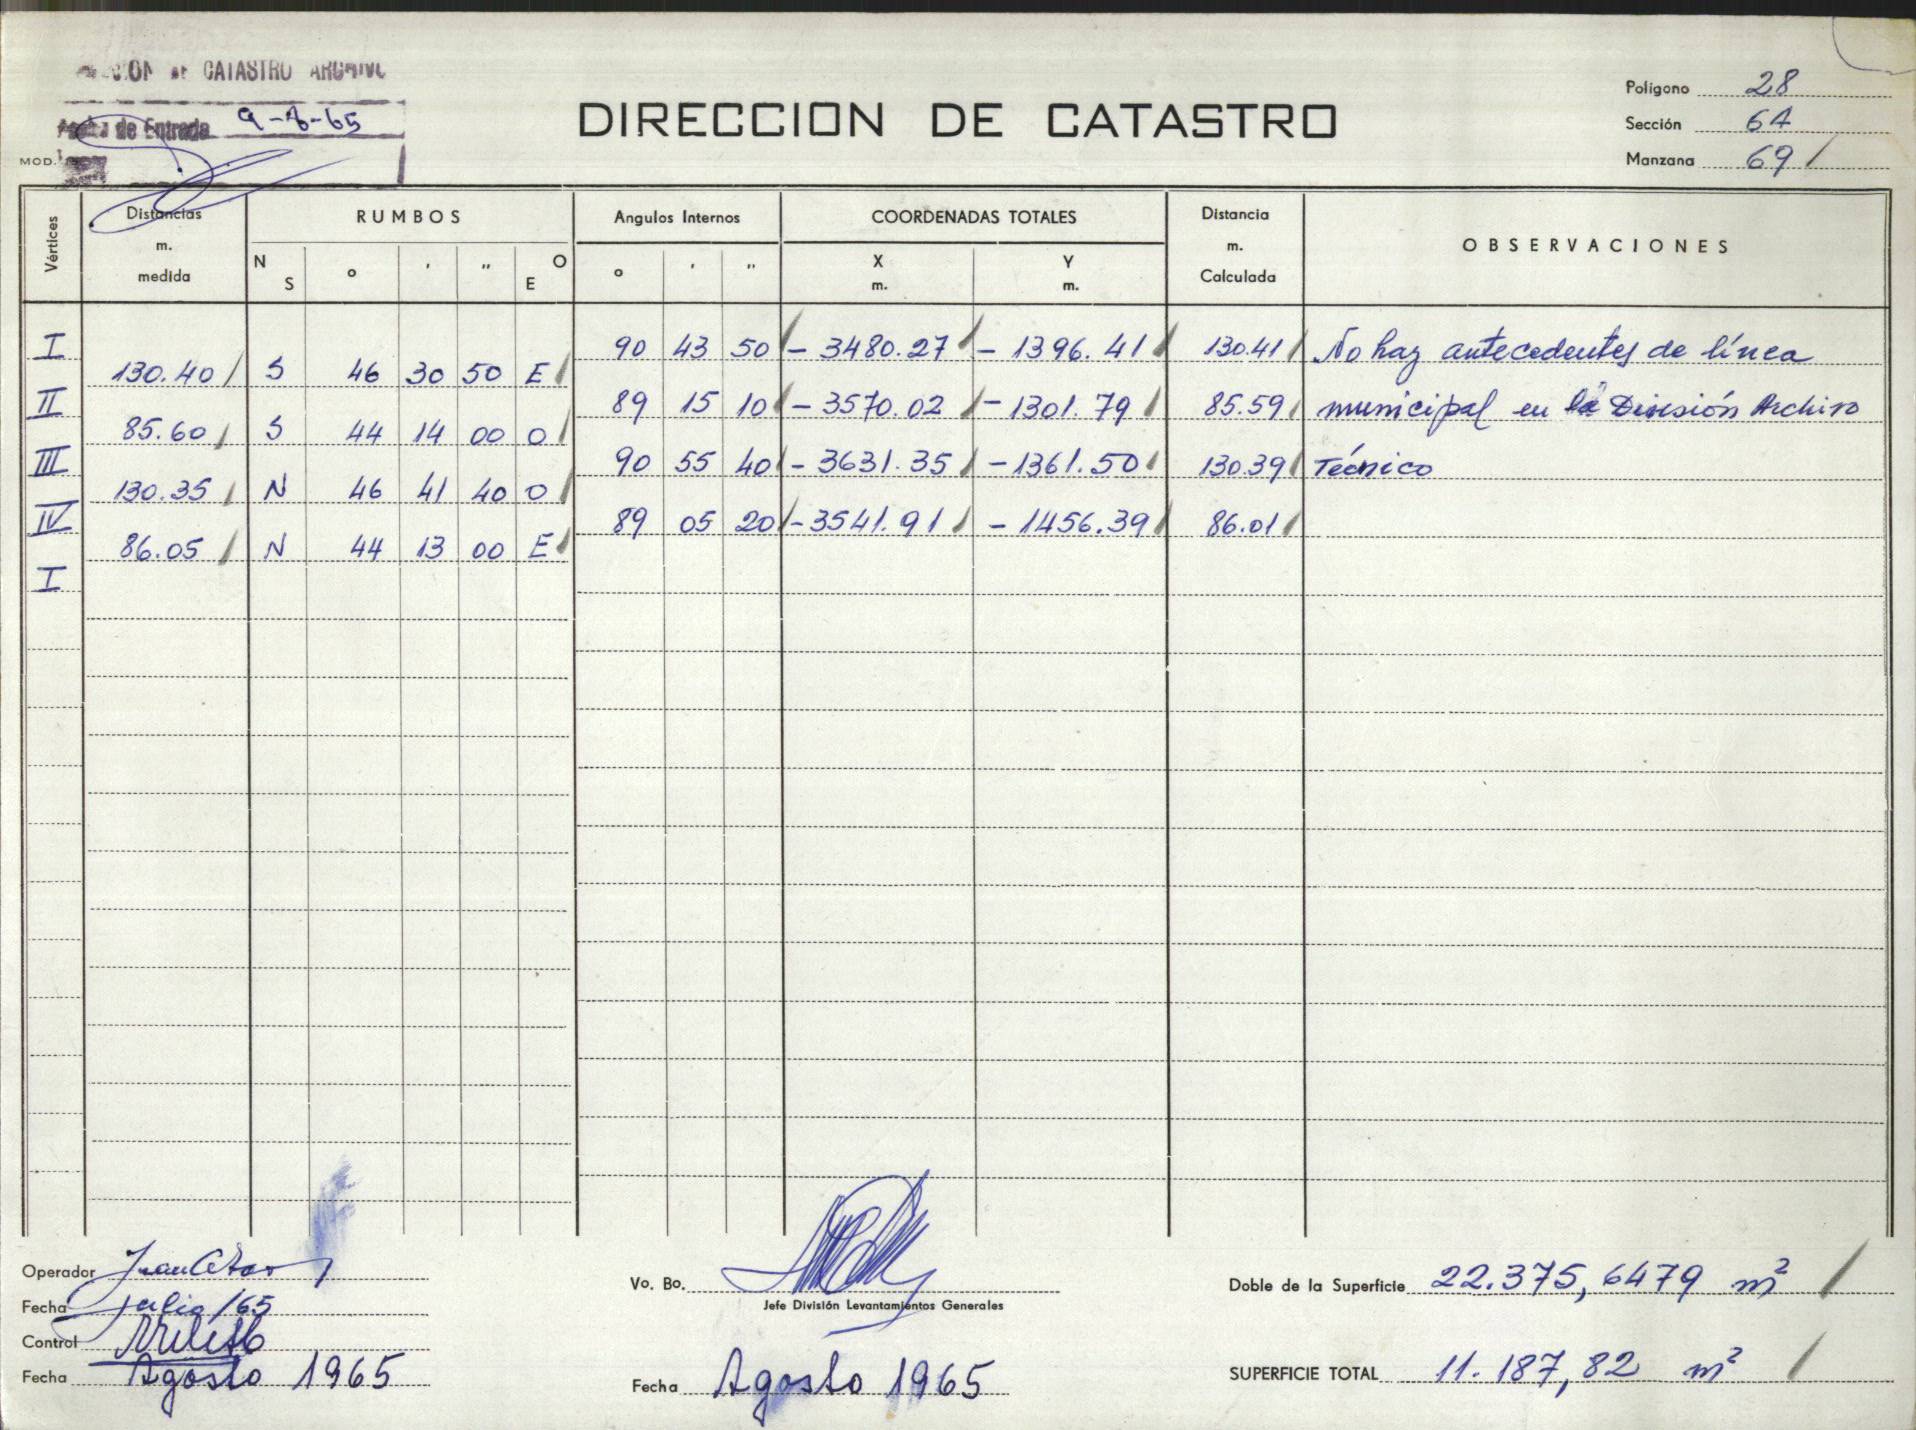 DE CATASTRO ARCHIVO
de Entrada 9-8-65
MOD.
DIRECCION DE CATASTRO
Polígono 28
Sección 64
Manzana 69
Vértices
Distancias
m.
medida
RUMBOS
N S ° ' " O E
Angulos Internos
° ' "
COORDENADAS TOTALES
X
m.
Y
m.
Distancia
m.
Calculada
OBSERVACIONES
I 90 43 50 - 3480.27 - 1396.41 130.41 No hay antecedentes de línea
130.40 S 46 30 50 E
II 89 15 10 - 3570.02 - 1301.79 85.59 municipal en la División Archivo
85.60 S 44 14 00 O
III 90 55 40 - 3631.35 - 1361.50 130.39 Técnico
130.35 N 46 41 40 O
IV 89 05 20 - 3541.91 - 1456.39 86.01
86.05 N 44 13 00 E
I
Operador
Fecha Julio/65
Control
Fecha Agosto 1965
Vo. Bo.
Jefe División Levantamientos Generales
Fecha Agosto 1965
Doble de la Superficie 22.375,6479 m²
SUPERFICIE TOTAL 11.187,82 m²